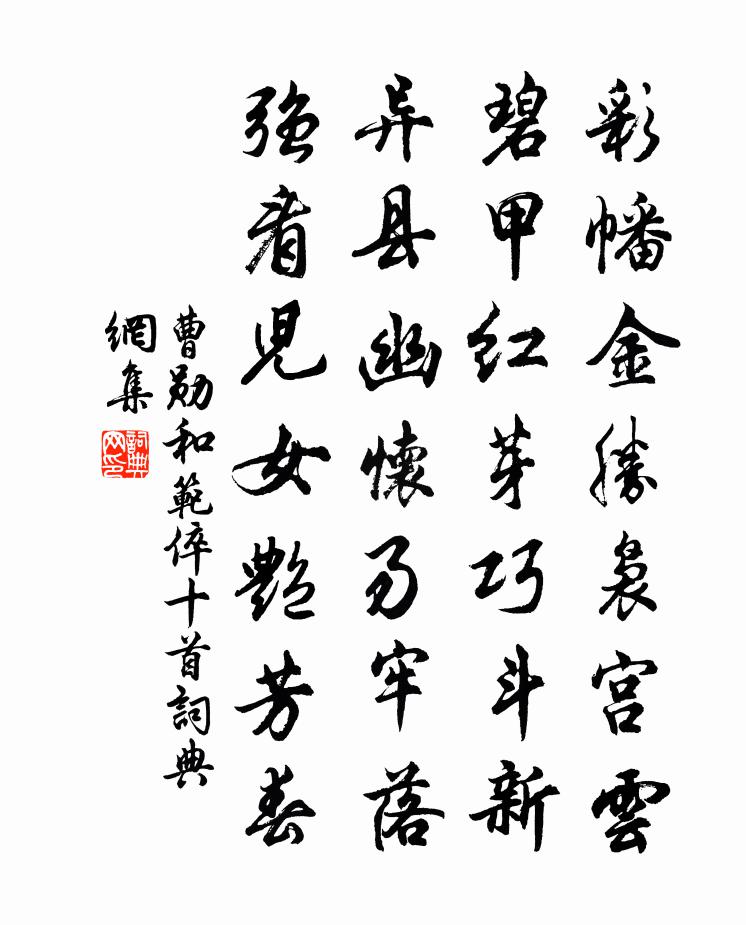 彩幡金勝裊宮雲
碧甲红芽巧斗新
异县幽懷乃牢落
强看児女艷芳春
曹勛和範倅十首詞典
網集
詞典网印